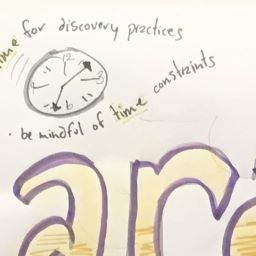 time for discovery practices
12
3
6
9
• be mindful of time constraints
ar